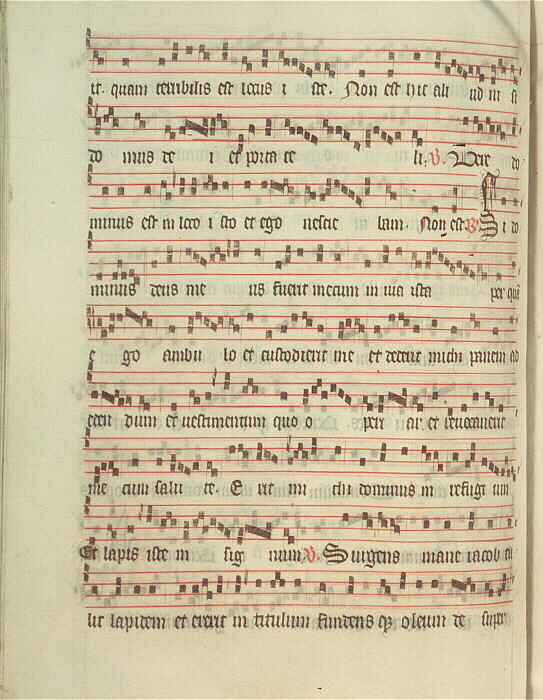 it. quam terribilis est locus i ste. Non est hic ali ud ni si
do mus de et porta ce li. V. Vere do
minus est in loco i sto et ego nescie bam. Non est. R. Si do
minus deus me us fuerit mecum in uia ista per quā
e go ambu lo et custodierit me et dederit michi panem ad
eden dum et uestimentum quo o peri ar. et reuocauerit
me cum salu te. E rit mi chi dominus in refugi um
Et lapis iste in sig num. V. Surgens mane iacob tu
lit lapidem et erexit in titulum fundens qz oleum de super